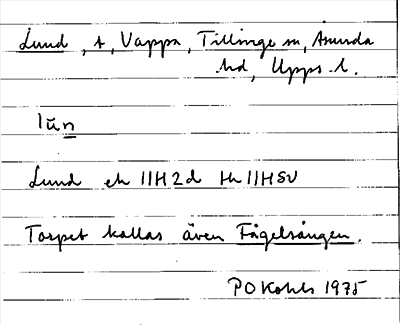 Lund, t, Vappa, Tillinge sn, Åsunda
hd, Upps. l.
lun
Lund ek 11H2d Hk 11HSV
Torpet kallas även Fågelsången.
PO Kohls 1975